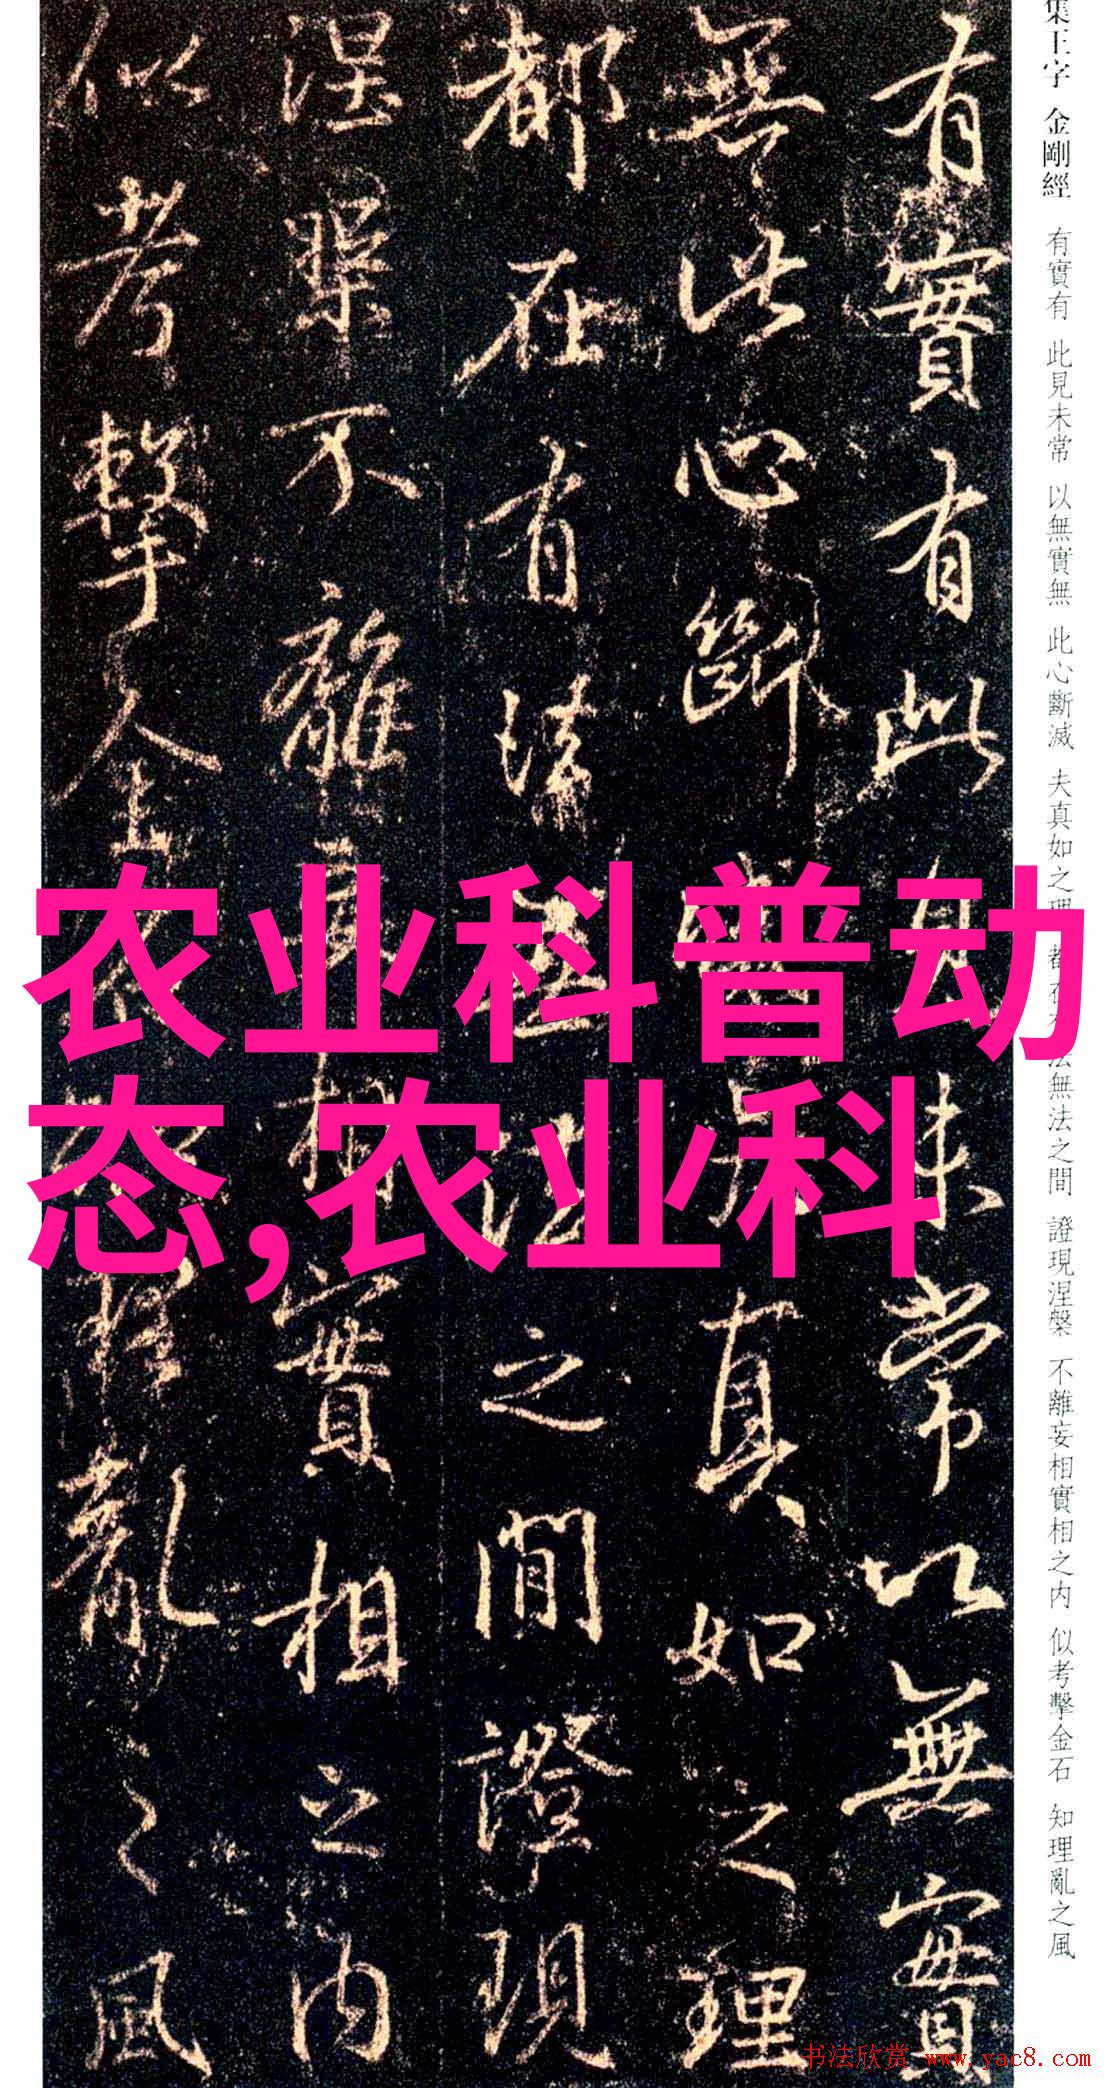 集王字 金剛經 有實有 此見未常 以無實無 此心斷滅 夫真如之理 都在有法無法之間 證現涅槃 不離妄相實相之內 似考擊金石 知理亂之風
有實有此見未常以無實
無此心斷滅夫真如之理
都在有法無法之間證現
涅槃不離妄相實相之內
似考擊金石知理亂之風
农业科普动
态,农业科
书法欣赏 www.yac8.com